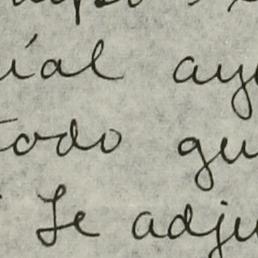 ial ay
todo qu
Se adju